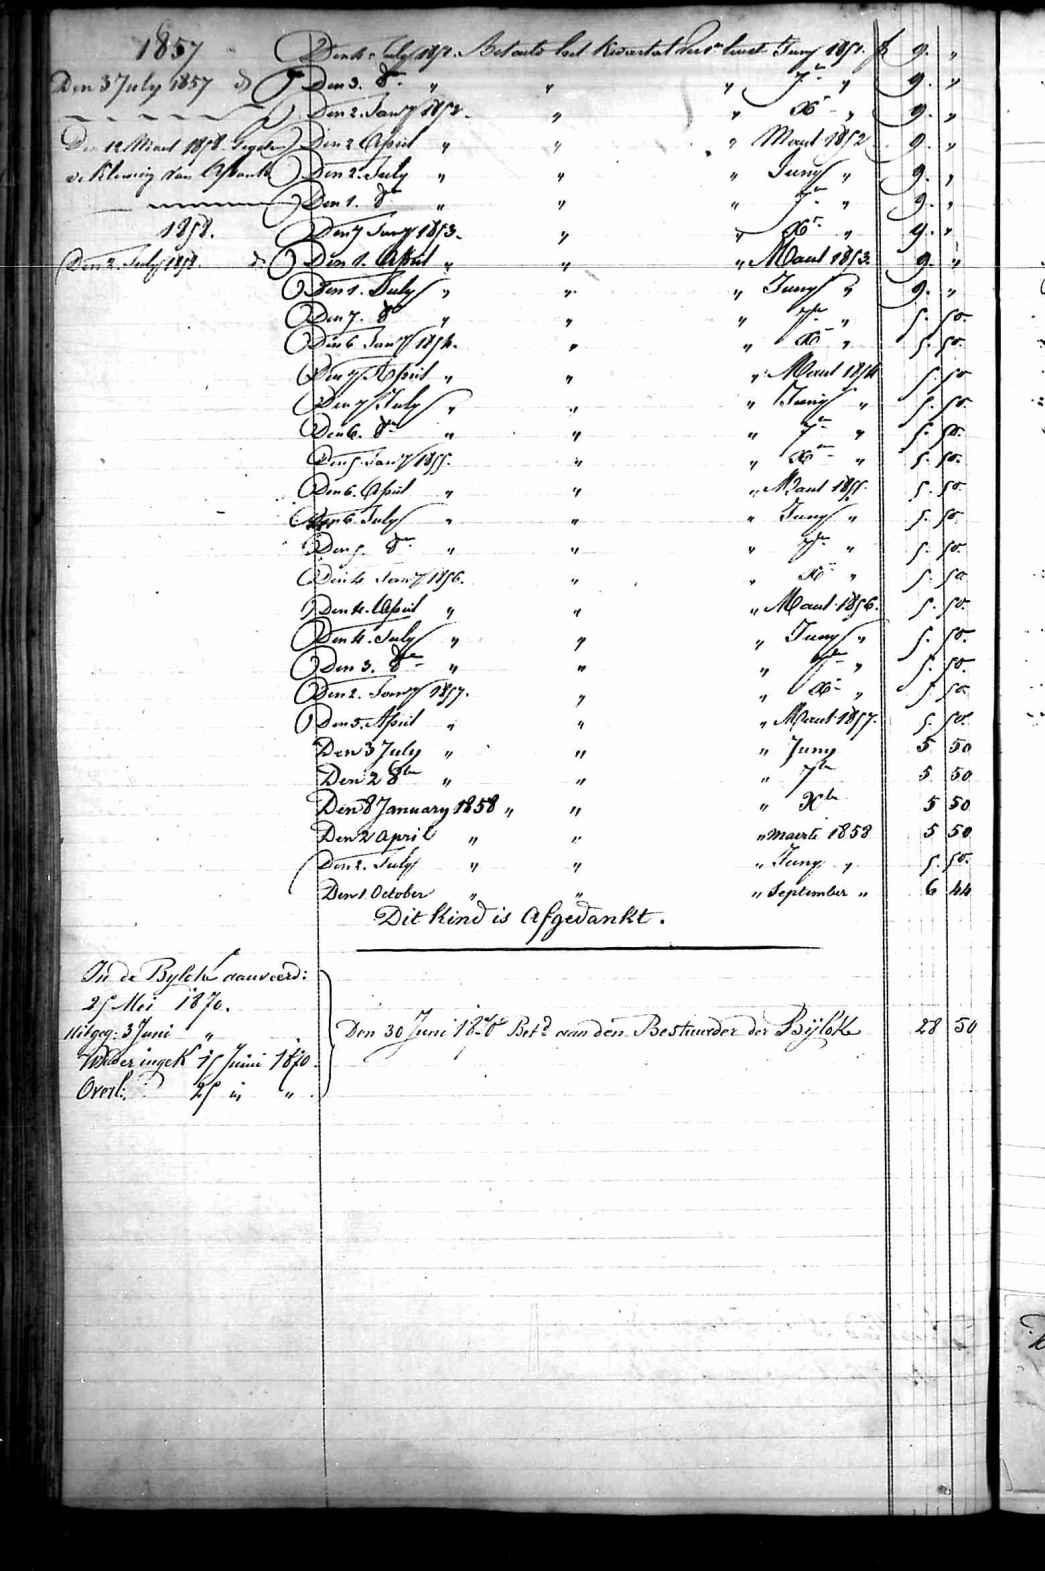 1857
Den 3 July 1857 d°
Den 12 Maart 1858
kleeding van
1858.
Den 2. July 1858. d°
Den 4. July 1851. Betaald het kwartal vers. ult. Juny 1851. f 9. "
Den 3. 8re " " " 7re " 9. "
Den 2. Jany 1852. " " Xr " 9. "
Den 2 April " " " Maart 1852 9. "
Den 2. July " " " Juny " 9. "
Den 1. 8re " " " 7re " 9. "
Den 7 Jany 1853. " " Xr " 9. "
Den 1. April " " " Maart 1853 9. "
Den 1. July " " " Juny " 9. "
Den 7. 8re " " " 7re " 5. 50.
Den 6. Jany 1854. " " Xr " 5. 50.
Den 7 April " " " Maart 1854 5. 50
Den 7 July " " " Juny " 5. 50.
Den 6. 8re " " " 7re " 5. 50.
Den 5. Jany 1855. " " Xr " 5. 50.
Den 6. April " " " Maart 1855. 5. 50.
Den 6. July " " " Juny " 5. 50.
Den 5. 8re " " " 7re " 5. 50.
Den 4 Jany 1856. " " Xr " 5. 50
Den 4. April " " " Maart 1856. 5. 50.
Den 4. July " " " Juny " 5. 50.
Den 3. 8re " " " 7re " 5. 50.
Den 2. Jany 1857. " " Xr " 5. 50.
Den 3. April " " " Maart 1857. 5. 50.
Den 3 July " " " Juny 5 50
Den 2 8bre " " " 7bre 5 50
Den 8 January 1858 " " " Xbre 5 50
Den 2 April " " " maerte 1858 5 50
Den 2. July " " " Juny " 5. 50.
Den 1. October " " " September " 6 44
Dit kind is Afgedankt.
In de Byloke aanveerd:
25 Mei 1870.
Uitgeg: 3 Juni "
Weder ingek 15 Juni 1870.
Overl: 25 " "
Den 30 Juni 1870 Betd aan den Bestuurder der Bijloke 28 50